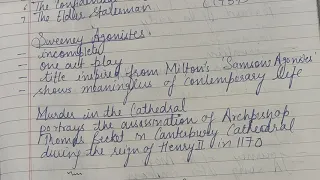 6. The Confidential
7. The Elder Statesman
Sweeney Agonistes.
- incomplete
- one act play
- title inspired from Milton's 'Samson Agonistes'
- shows meaningless of contemporary life
Murder in the Cathedral
portrays the assassination of Archbishop
Thomas Becket in Canterbury Cathedral
during the reign of Henry II in 1170